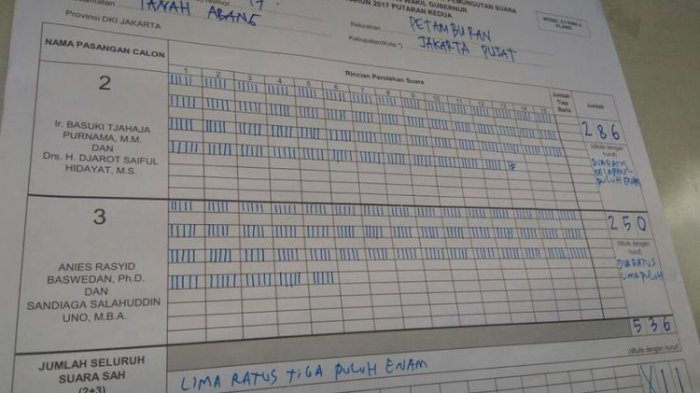 PEMUNGUTAN SUARA
WAKIL GUBERNUR
TAHUN 2017 PUTARAN KEDUA
TANAH ABANG
Nomor 17
Provinsi DKI JAKARTA
Kelurahan PETAMBURAN
Kabupaten/Kota *) JAKARTA PUSAT
NAMA PASANGAN CALON
Rincian Perolehan Suara
Jumlah Tiap Baris
Jumlah
1 2 3 4 5 6 7 8 9 10 11 12 13 14 15
2
Ir. BASUKI TJAHAJA
PURNAMA, M.M.
DAN
Drs. H. DJAROT SAIFUL
HIDAYAT, M.S.
286
(ditulis dengan
huruf)
DUA RATUS
DELAPAN
PULUH ENAM
3
ANIES RASYID
BASWEDAN, Ph.D.
DAN
SANDIAGA SALAHUDDIN
UNO, M.B.A.
250
(ditulis dengan
huruf)
DUA RATUS
LIMA PULUH
536
JUMLAH SELURUH
SUARA SAH
(2+3)
LIMA RATUS TIGA PULUH ENAM
(ditulis dengan huruf)